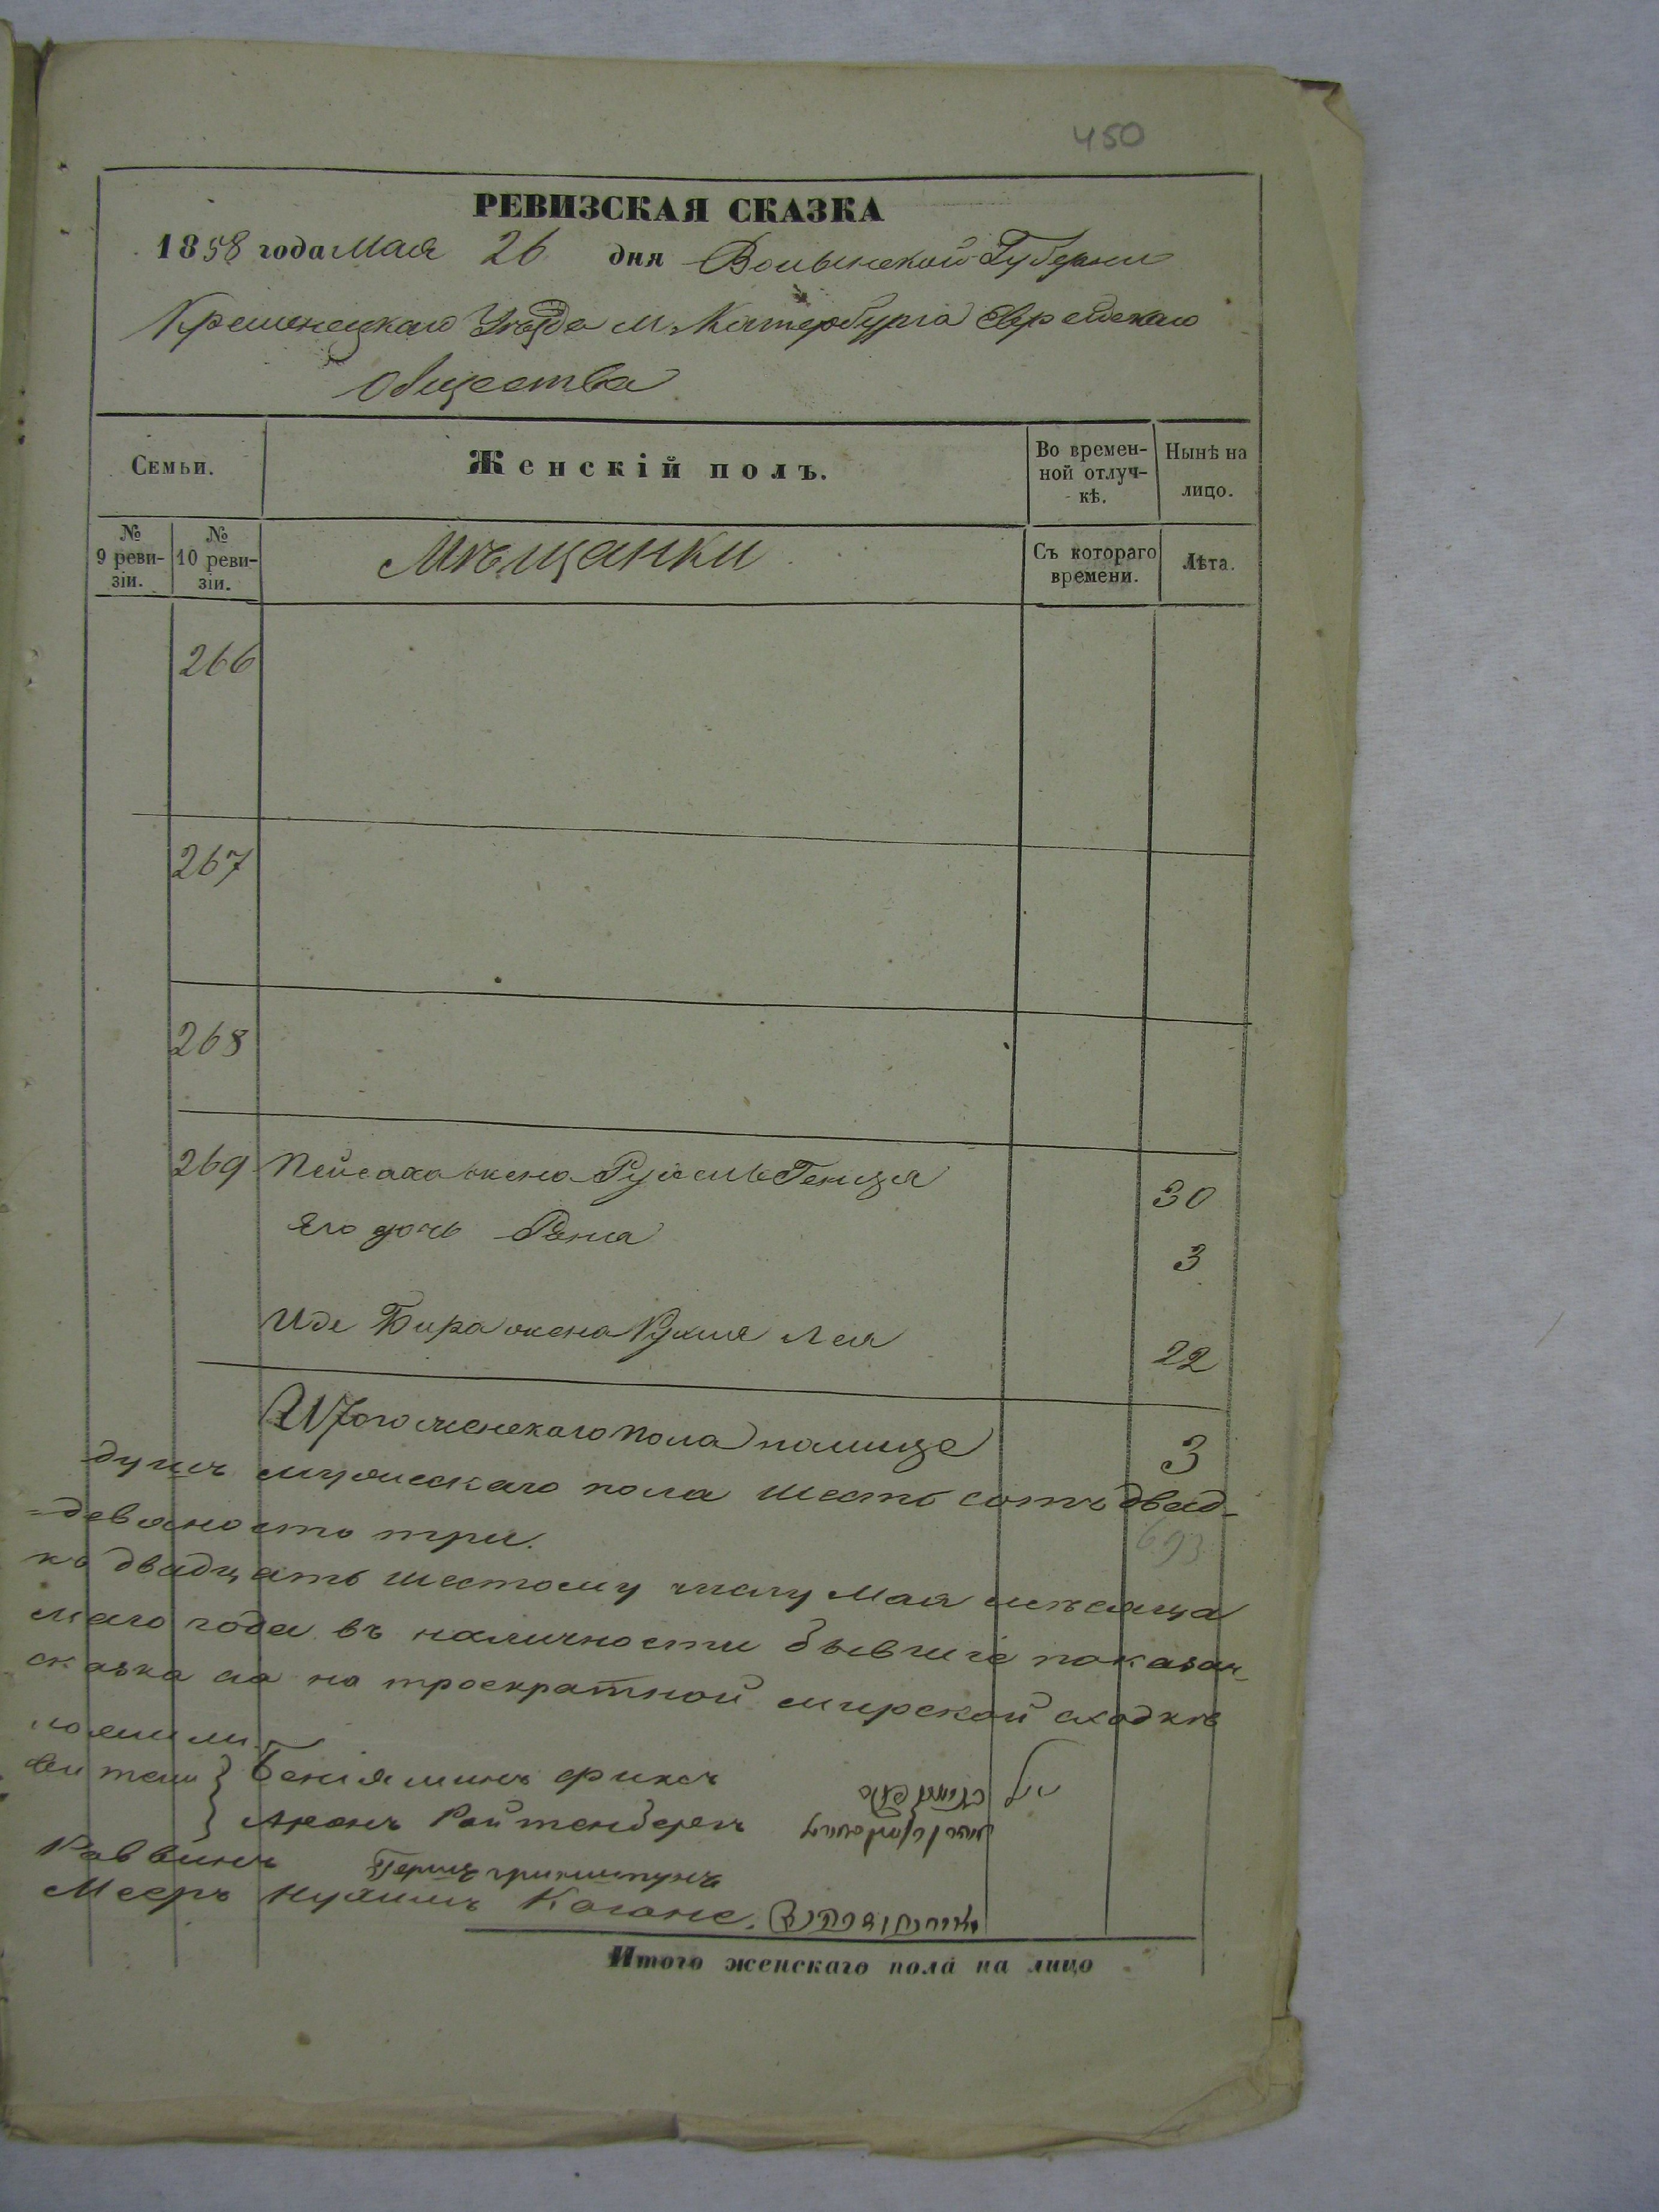 450
РЕВИЗСКАЯ СКАЗКА
1858 года Мая 26 дня Волынской Губернии
Кременецкаго Уѣзда м. Катербурга Еврейскаго
Общества
Семьи. Женскій полъ. Во времен- Нынѣ на
ной отлуч-
кѣ. лицо.
№ №
9 реви- 10 реви- Мѣщанки Съ котораго Лѣта.
зіи. зіи. времени.
266
267
268
269 Пейсаха жена Рухль Генця 30
Его дочь 3
жена Рухля Лея 22
Итого женскаго пола налице 3
душъ мужескаго пола шесть сотъ двад-
=девяносто три. 693
къ двадцать шестому числу Мая мѣсяца
маго года въ наличности бывшіе показан-
сказка сія на троекратной мирской сходкѣ
Беніяминъ Фиксъ
Аронъ Ройтенбергъ
Раввинъ Гершъ
Мееръ Нухимъ Когане.
Итого женскаго пола на лицо